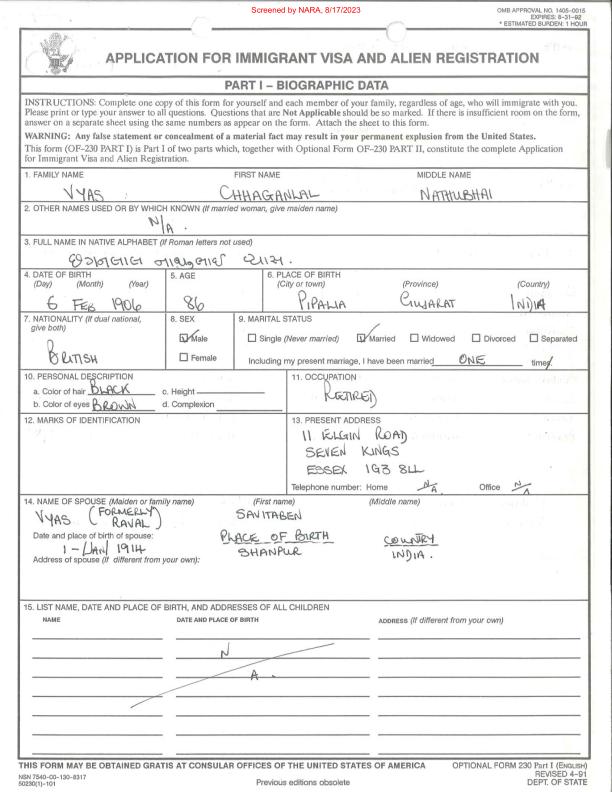 Screened by NARA, 8/17/2023
OMB APPROVAL NO. 1405-0015
EXPIRES: 8-31-92
* ESTIMATED BURDEN: 1 HOUR
APPLICATION FOR IMMIGRANT VISA AND ALIEN REGISTRATION
PART I – BIOGRAPHIC DATA
INSTRUCTIONS: Complete one copy of this form for yourself and each member of your family, regardless of age, who will immigrate with you.
Please print or type your answer to all questions. Questions that are Not Applicable should be so marked. If there is insufficient room on the form,
answer on a separate sheet using the same numbers as appear on the form. Attach the sheet to this form.
WARNING: Any false statement or concealment of a material fact may result in your permanent explusion from the United States.
This form (OF-230 PART I) is Part I of two parts which, together with Optional Form OF-230 PART II, constitute the complete Application
for Immigrant Visa and Alien Registration.
1. FAMILY NAME FIRST NAME MIDDLE NAME
VYAS CHHAGANLAL NATHUBHAI
2. OTHER NAMES USED OR BY WHICH KNOWN (If married woman, give maiden name)
N/A.
3. FULL NAME IN NATIVE ALPHABET (If Roman letters not used)
4. DATE OF BIRTH 5. AGE 6. PLACE OF BIRTH
(Day) (Month) (Year) (City or town) (Province) (Country)
6 FEB 1906 86 PIPALIA GUJARAT INDIA
7. NATIONALITY (If dual national, give both) 8. SEX 9. MARITAL STATUS
BRITISH
Male Single (Never married) Married Widowed Divorced Separated
Female Including my present marriage, I have been married ONE times.
10. PERSONAL DESCRIPTION 11. OCCUPATION
a. Color of hair BLACK c. Height RETIRED
b. Color of eyes BROWN d. Complexion
12. MARKS OF IDENTIFICATION 13. PRESENT ADDRESS
11 ELGIN ROAD
SEVEN KINGS
ESSEX IG3 8LL
Telephone number: Home N/A Office N/A
14. NAME OF SPOUSE (Maiden or family name) (First name) (Middle name)
VYAS (FORMERLY RAVAL) SAVITABEN
Date and place of birth of spouse: PLACE OF BIRTH COUNTRY
1 - JAN 1914 SHANPUR INDIA.
Address of spouse (If different from your own):
15. LIST NAME, DATE AND PLACE OF BIRTH, AND ADDRESSES OF ALL CHILDREN
NAME DATE AND PLACE OF BIRTH ADDRESS (If different from your own)
N
A.
THIS FORM MAY BE OBTAINED GRATIS AT CONSULAR OFFICES OF THE UNITED STATES OF AMERICA OPTIONAL FORM 230 Part I (ENGLISH)
REVISED 4-91
NSN 7540-00-130-8317
50230(1)-101 Previous editions obsolete DEPT. OF STATE